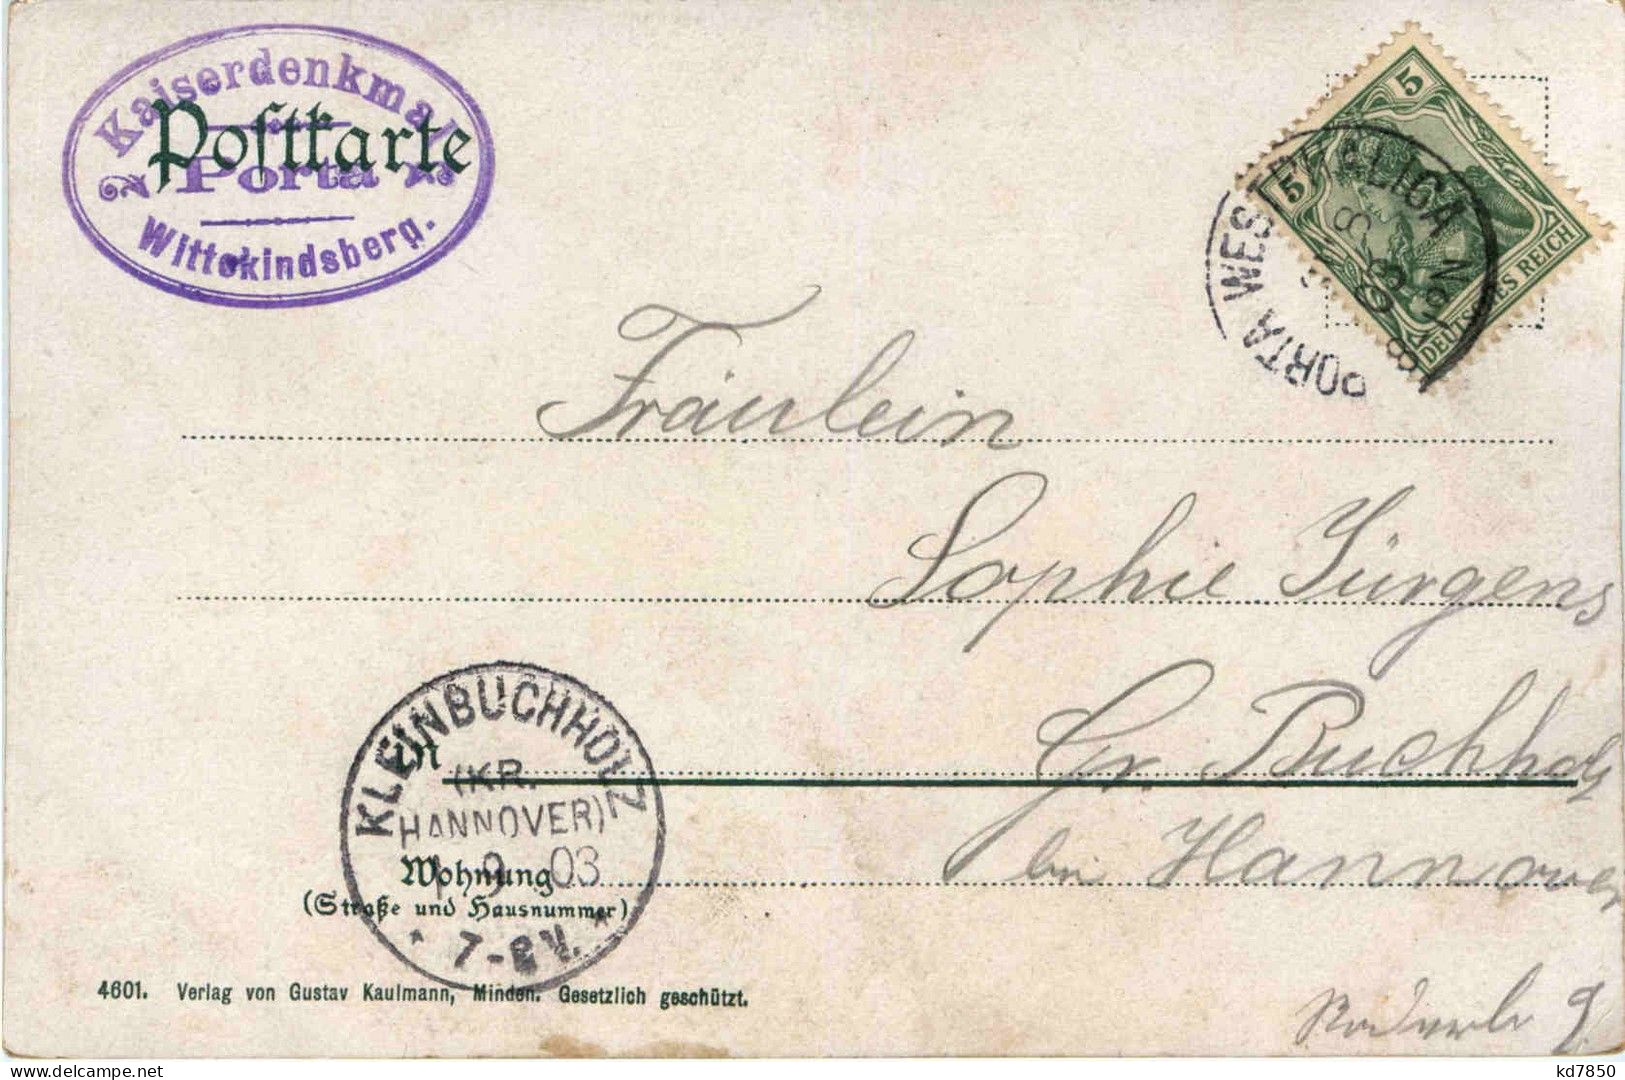 Kaiserdenkmal
Postkarte
Porta
Wittekindsberg.
5
5
DEUTSCHES REICH
PORTA WESTFALICA
Fräulein
Sophie Jürgens
Gr. Buchholz
bei Hannover
KLEINBUCHHOLZ
(KR.
HANNOVER)
In
9 03
Wohnung
(Straße und Hausnummer)
* 7-8 V. *
4601. Verlag von Gustav Kaulmann, Minden. Gesetzlich geschützt.
kd7850